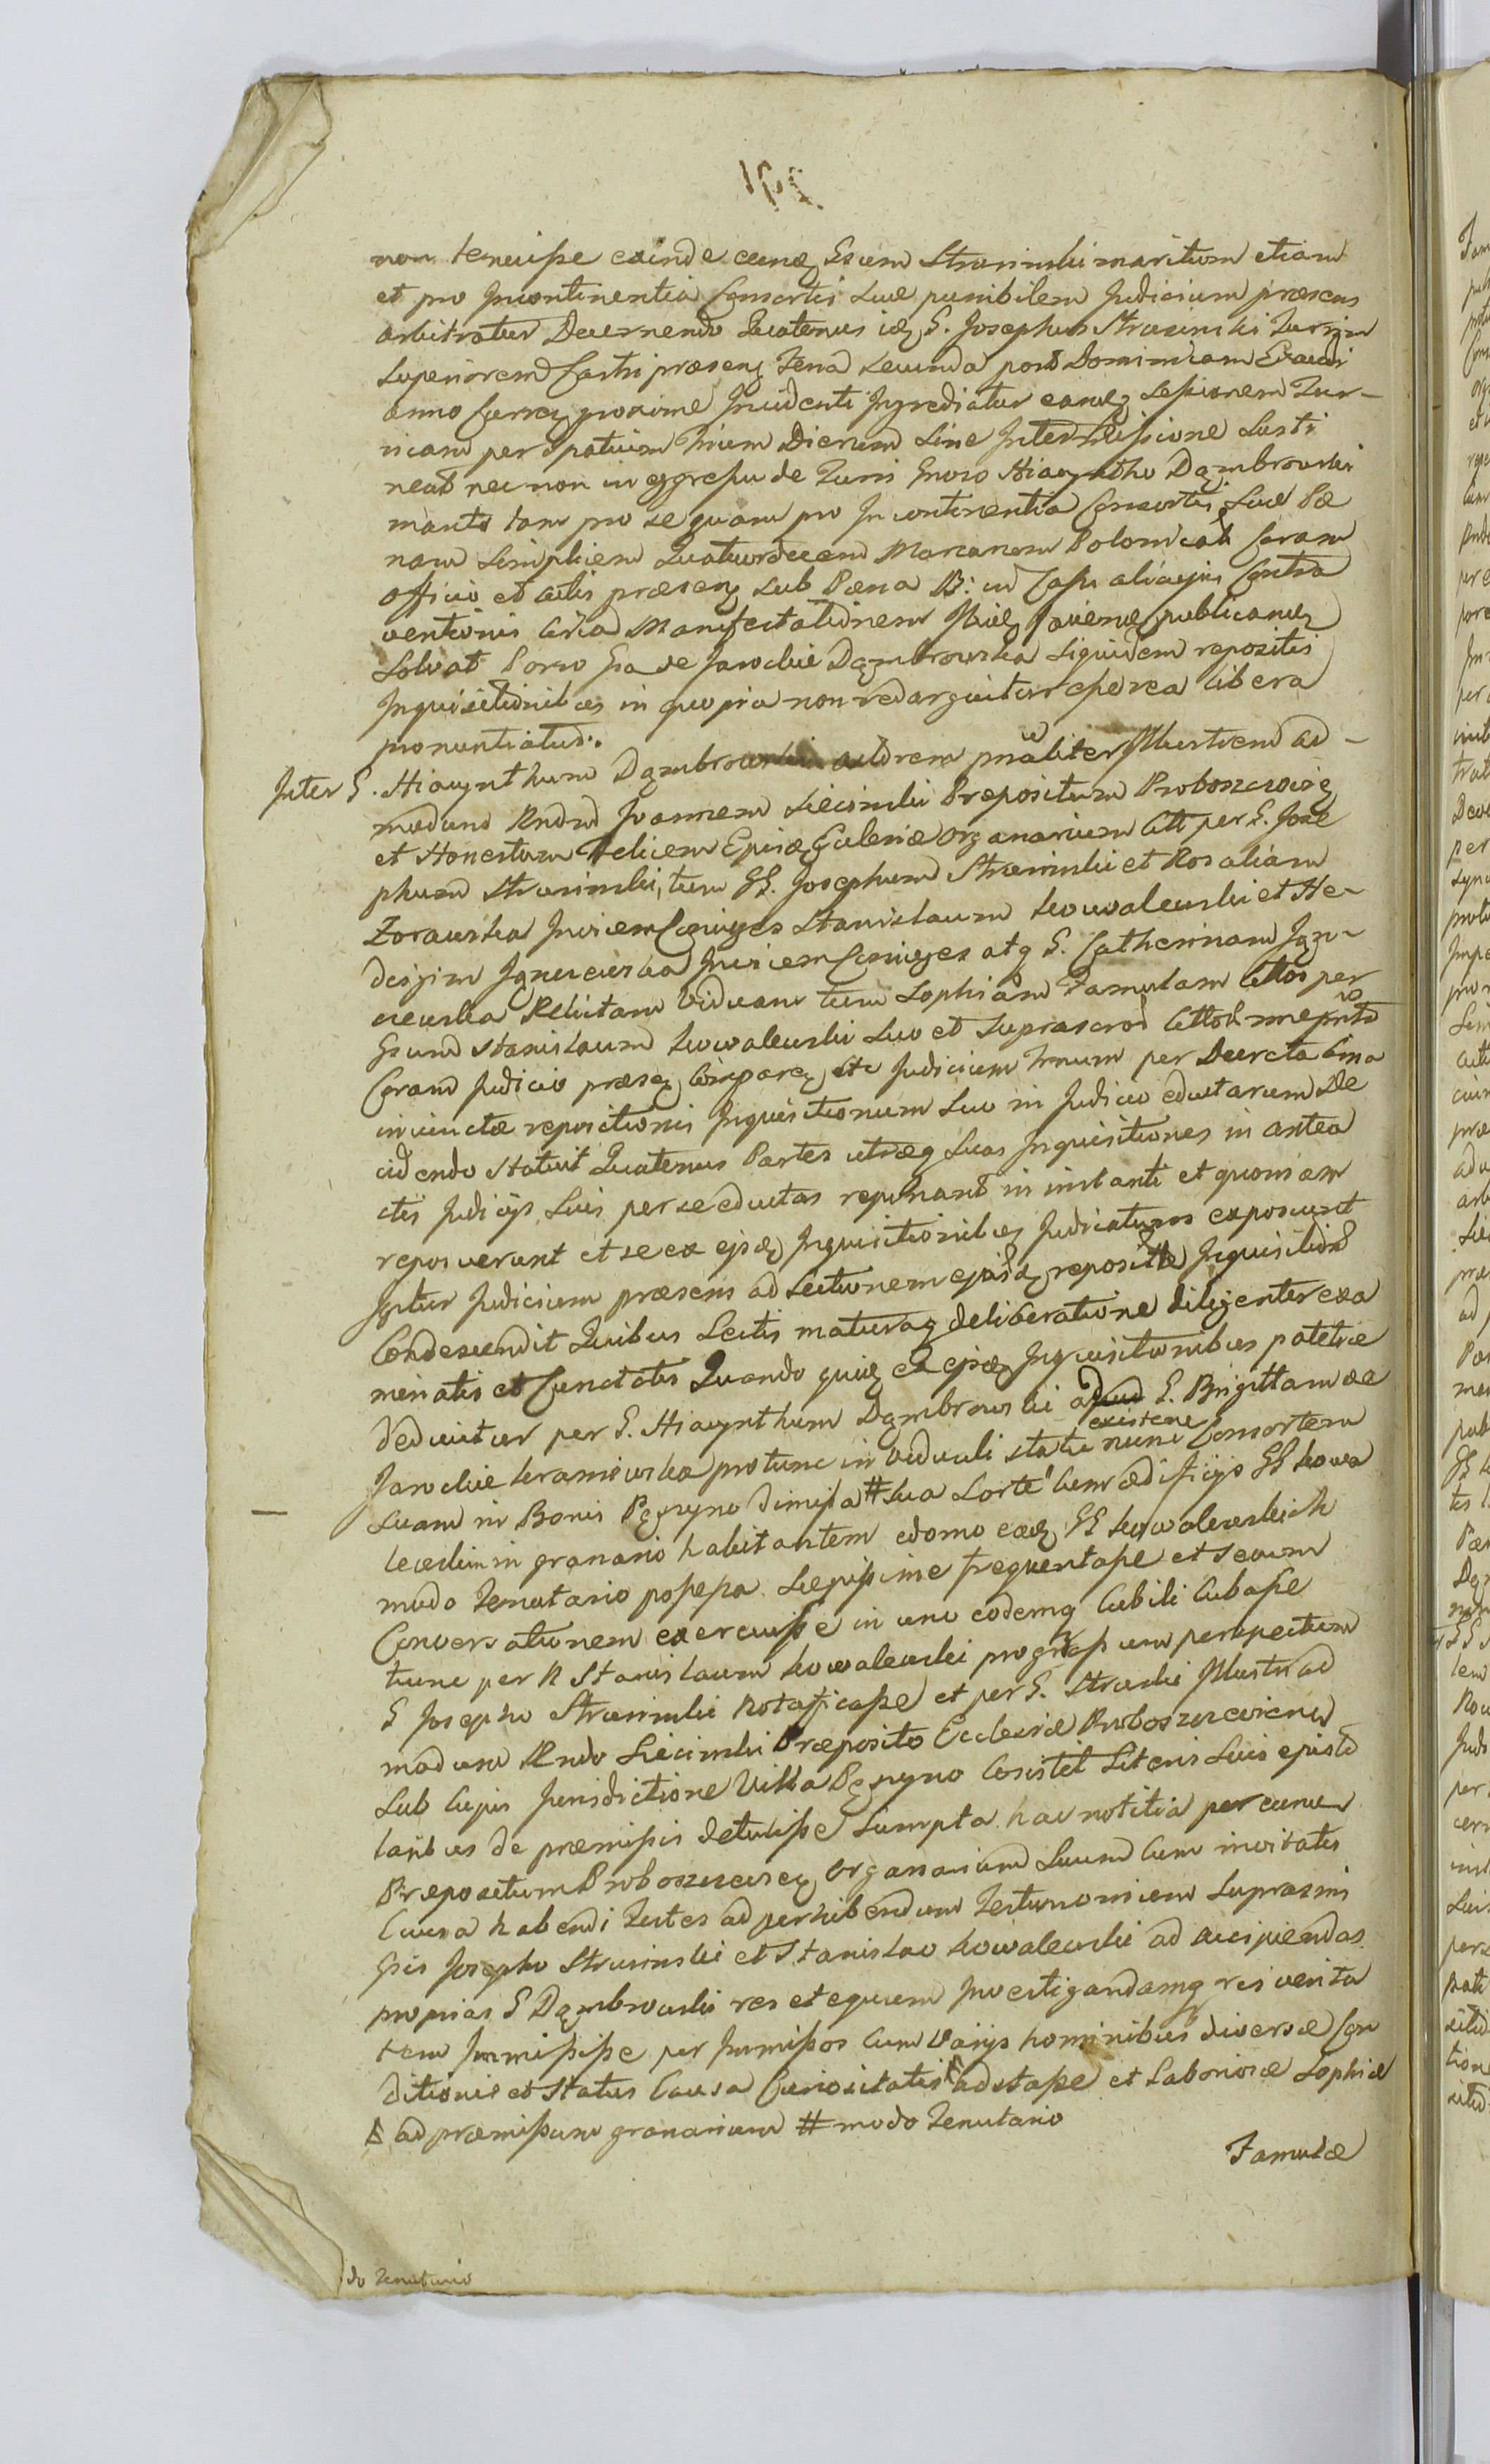 non tenuisse exinde eumq Gsum Strusinski maritum etiam
et pro Incontinentia Consortis suæ punibilem Judicium præsens
arbitratur Decernendo Quatenus idq G. Josephus Strusinski Turrim
superiorem Castri præsenq Feria secunda post Dominicam Exaudi
anno Currenq proxime Incidenti Ingrediatur eamq sessionem Tur-
ricam per spatium Trium Dierum sine Intermissione susti
neat nec non in eggressu de Turri Gnoso Hiacyntho Dąmbrowski
marito tam pro se quam pro Incontinentia Consortis suæ Pæ
nam simplicem Quatuordecem Marcarum Polonical Coram
officio et actis præsenq sub Pæna B: in Casu alicujus Contra
ventionis
solvat Porro Gsa de Jarockie Dąmbrowska siquidem repositis
Inquisitionibus in quopia non redarguitur esse rea libera
pronuntiatur.
Inter G. Hiacynthum Dąmbrowski actorem præliter Illustrem ad-
modum Rndum Joannem Siecinski Præpositum Proboszczoviq
et Honestum Felicem Epiæq Eclesiæ organarium Citt per G. Jose
phum Strusinski, tum GG. Josephum Strusinski et Rosaliam
Zorawska Invicem Coniuges Stanislaum Kowalewski et He-
dvigim Ignacewska Invicem Coniuges atq G. Catherinam Igna-
cewska Relictam Viduam tum Sophiam Famulam Cittos per
Gsum Stanislaum Kowalewski suo et suprascrod Cittod
Coram Judicio præsq Comparq Hic Judicium Irnum per Decreta
iniunctæ repositionis Inquisitionum suo in Judicio eductarum De
cidendo statuit Quatenus Partes utræq suas Inquisitiones in antea
ctis Judicijs suis per se eductas reponant in instanti et quoniam
reposuerunt et se ex ejsdq Inquisitionibq Judicaturos exposcunt
Igitur Judicium præsens ad Lectionem ejusdq repositæ Inquisitiod
Condescendit Quibus Lectis maturaq deliberatione diligenter exa
minatis et Cunctatis Quando quidq ex ejsdq Inquisitionibus patet
deducitur per G. Hiacynthum Dąmbrowski apud G. Brigittam de
existene
Jarockie Kraniewska protunc in viduali statu nunc Consortem
suam in Bonis Pęszyno dimissa # sua sorte Cum ædificijs GG Kowa
lewskim in granario habitantem e domo eadq GG Kowalewskich
modo Tenutario possessa sæpissime frequentasse et secum
Conversationem exercuisse in uno eodemq Cubili Cubasse
tunc per N Stanislaum Kowalewski progressum perspectum
G Josepho Strusinski Notificasse et per G. Struski Illustri ad
modum Rndo Siecinski Præposito Ecclesiæ Proboszczeviens
sub Cujus Jurisdictione Villa Pęszyno Consistit Literis suis episto
laribus de præmissis detulisse sumpta hac notitia per eum
Præpositum Proboszczewscq organarium suum Cum invitatis
Causa habendi Testes ad perhibendum Testimonium suprasmi
Gsis Josepho Strusinski et Stanislao Kowalewski ad accipiendas
proprias G Dąmbrowski res et equum Investigandamq rei verita
tem Immisisse per Immissos Cum varijs hominibus diversæ Con
ditionis et status Causa Curiositatis adstasse et Laboriosæ Sophiæ
ad præmissum granarium # modo Tenutario
Famulæ
do Tenutario